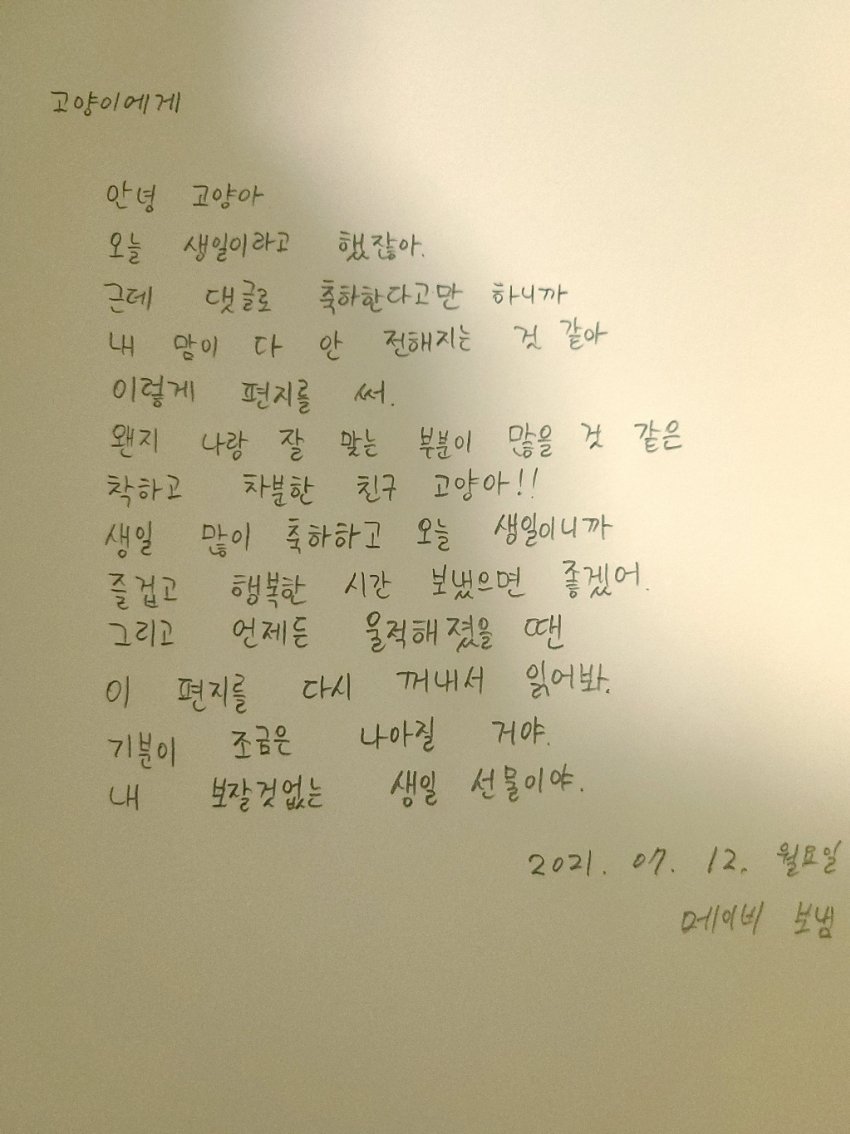 고양이에게
안녕 고양아
오늘 생일이라고 했잖아.
근데 댓글로 축하한다고만 하니까
내 맘이 다 안 전해지는 것 같아
이렇게 편지를 써.
왠지 나랑 잘 맞는 부분이 많을 것 같은
착하고 차분한 친구 고양아!!
생일 많이 축하하고 오늘 생일이니까
즐겁고 행복한 시간 보냈으면 좋겠어.
그리고 언제든 울적해졌을 땐
이 편지를 다시 꺼내서 읽어봐.
기분이 조금은 나아질 거야.
내 보잘것없는 생일 선물이야.
2021. 07. 12. 월요일
메이비 보냄